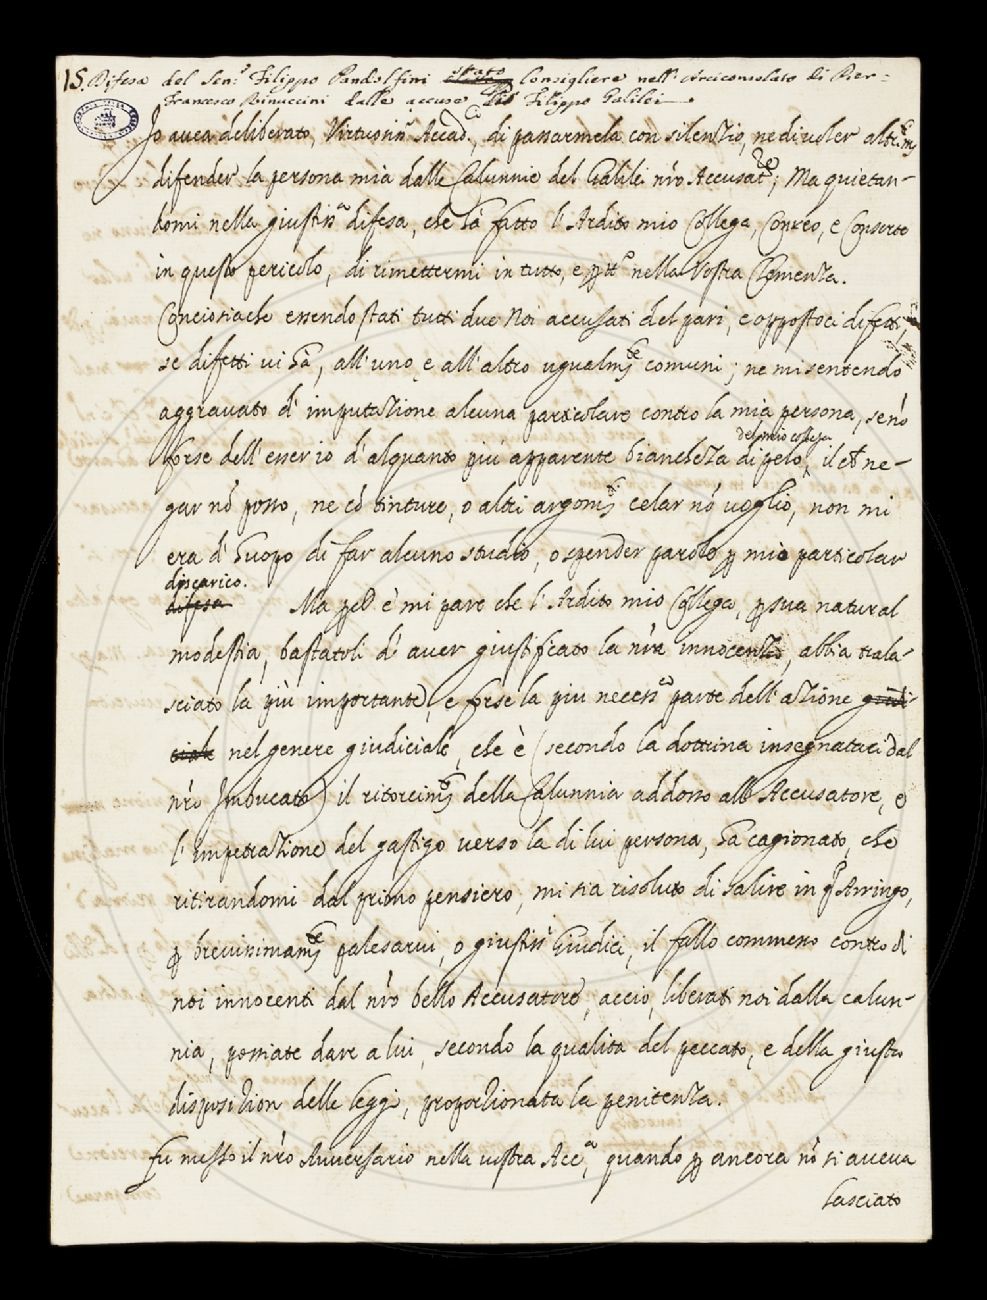 15. Difesa del Sen.r Filippo Pandolfini stato Consigliere nell'Arciconsolato di Pier=
Francesco Rinuccini dalle accuse di Filippo Galilei.
Io avea deliberato, Virtuosiss.i Accad.ci, di passarmela con silenzio, ne di voler altrim.te
difender la persona mia dalle Calunnie del Galilei nr̃o Accusat.re; Ma quietan-
domi nella giustiss.a difesa, che hà fatto l'Ardito mio Collega, Correo, e Consorte
in questo pericolo, di rimettermi in tutto, e ꝑ tt.o nella Vostra Clemenza.
Conciosiache essendo stati tutti due Noi accusati del pari, e oppostoci difetti,
se difetti vi hà, all'uno e all'altro ugualm.te comuni; ne mi sentendo
aggravato d'imputazione alcuna particolare contro la mia persona, se nõ
forse dell'esser io d'alquanto più apparente bianchezza di pelo del mio collega, il che ne-
gar nõ posso, ne cõ tinture, o altri argom.ti celar nõ voglio, non mi
era d'huopo di far alcuno studio, o spender parole ꝑ mio particolar
discarico.
difesa Ma ꝑche è mi pare che l'Ardito mio Collega, ꝑ sua natural
modestia, bastatoli d'aver giustificato la nr̃a innocenza, abbia trala-
sciato la più importante, e forse la piu necess.a parte dell'azione giudi-
ciale nel genere giudiciale, che è (secondo la dottrina insegnataci dal
nr̃o Imbucato) il ritorcim.to della Calunnia addosso allo Accusatore, e
l'impetrazione del gastigo verso la di lui persona, hà cagionato, che
ritirandomi dal primo pensiero, mi sia risoluto di salire in q.o Arringo,
ꝑ brevissimam.te palesarvi, o giustiss.i Giudici, il fallo commesso contro di
noi innocenti dal nr̃o bello Accusatore, acciò, liberati noi dalla calun-
nia, possiate dare a lui, secondo la qualità del peccato, e della giusta
disposizion delle leggi, proporzionata la penitenza.
Fu messo il nr̃o Avversario nella vostra Acc.a, quando ꝑ ancora nõ si aveva
lasciato